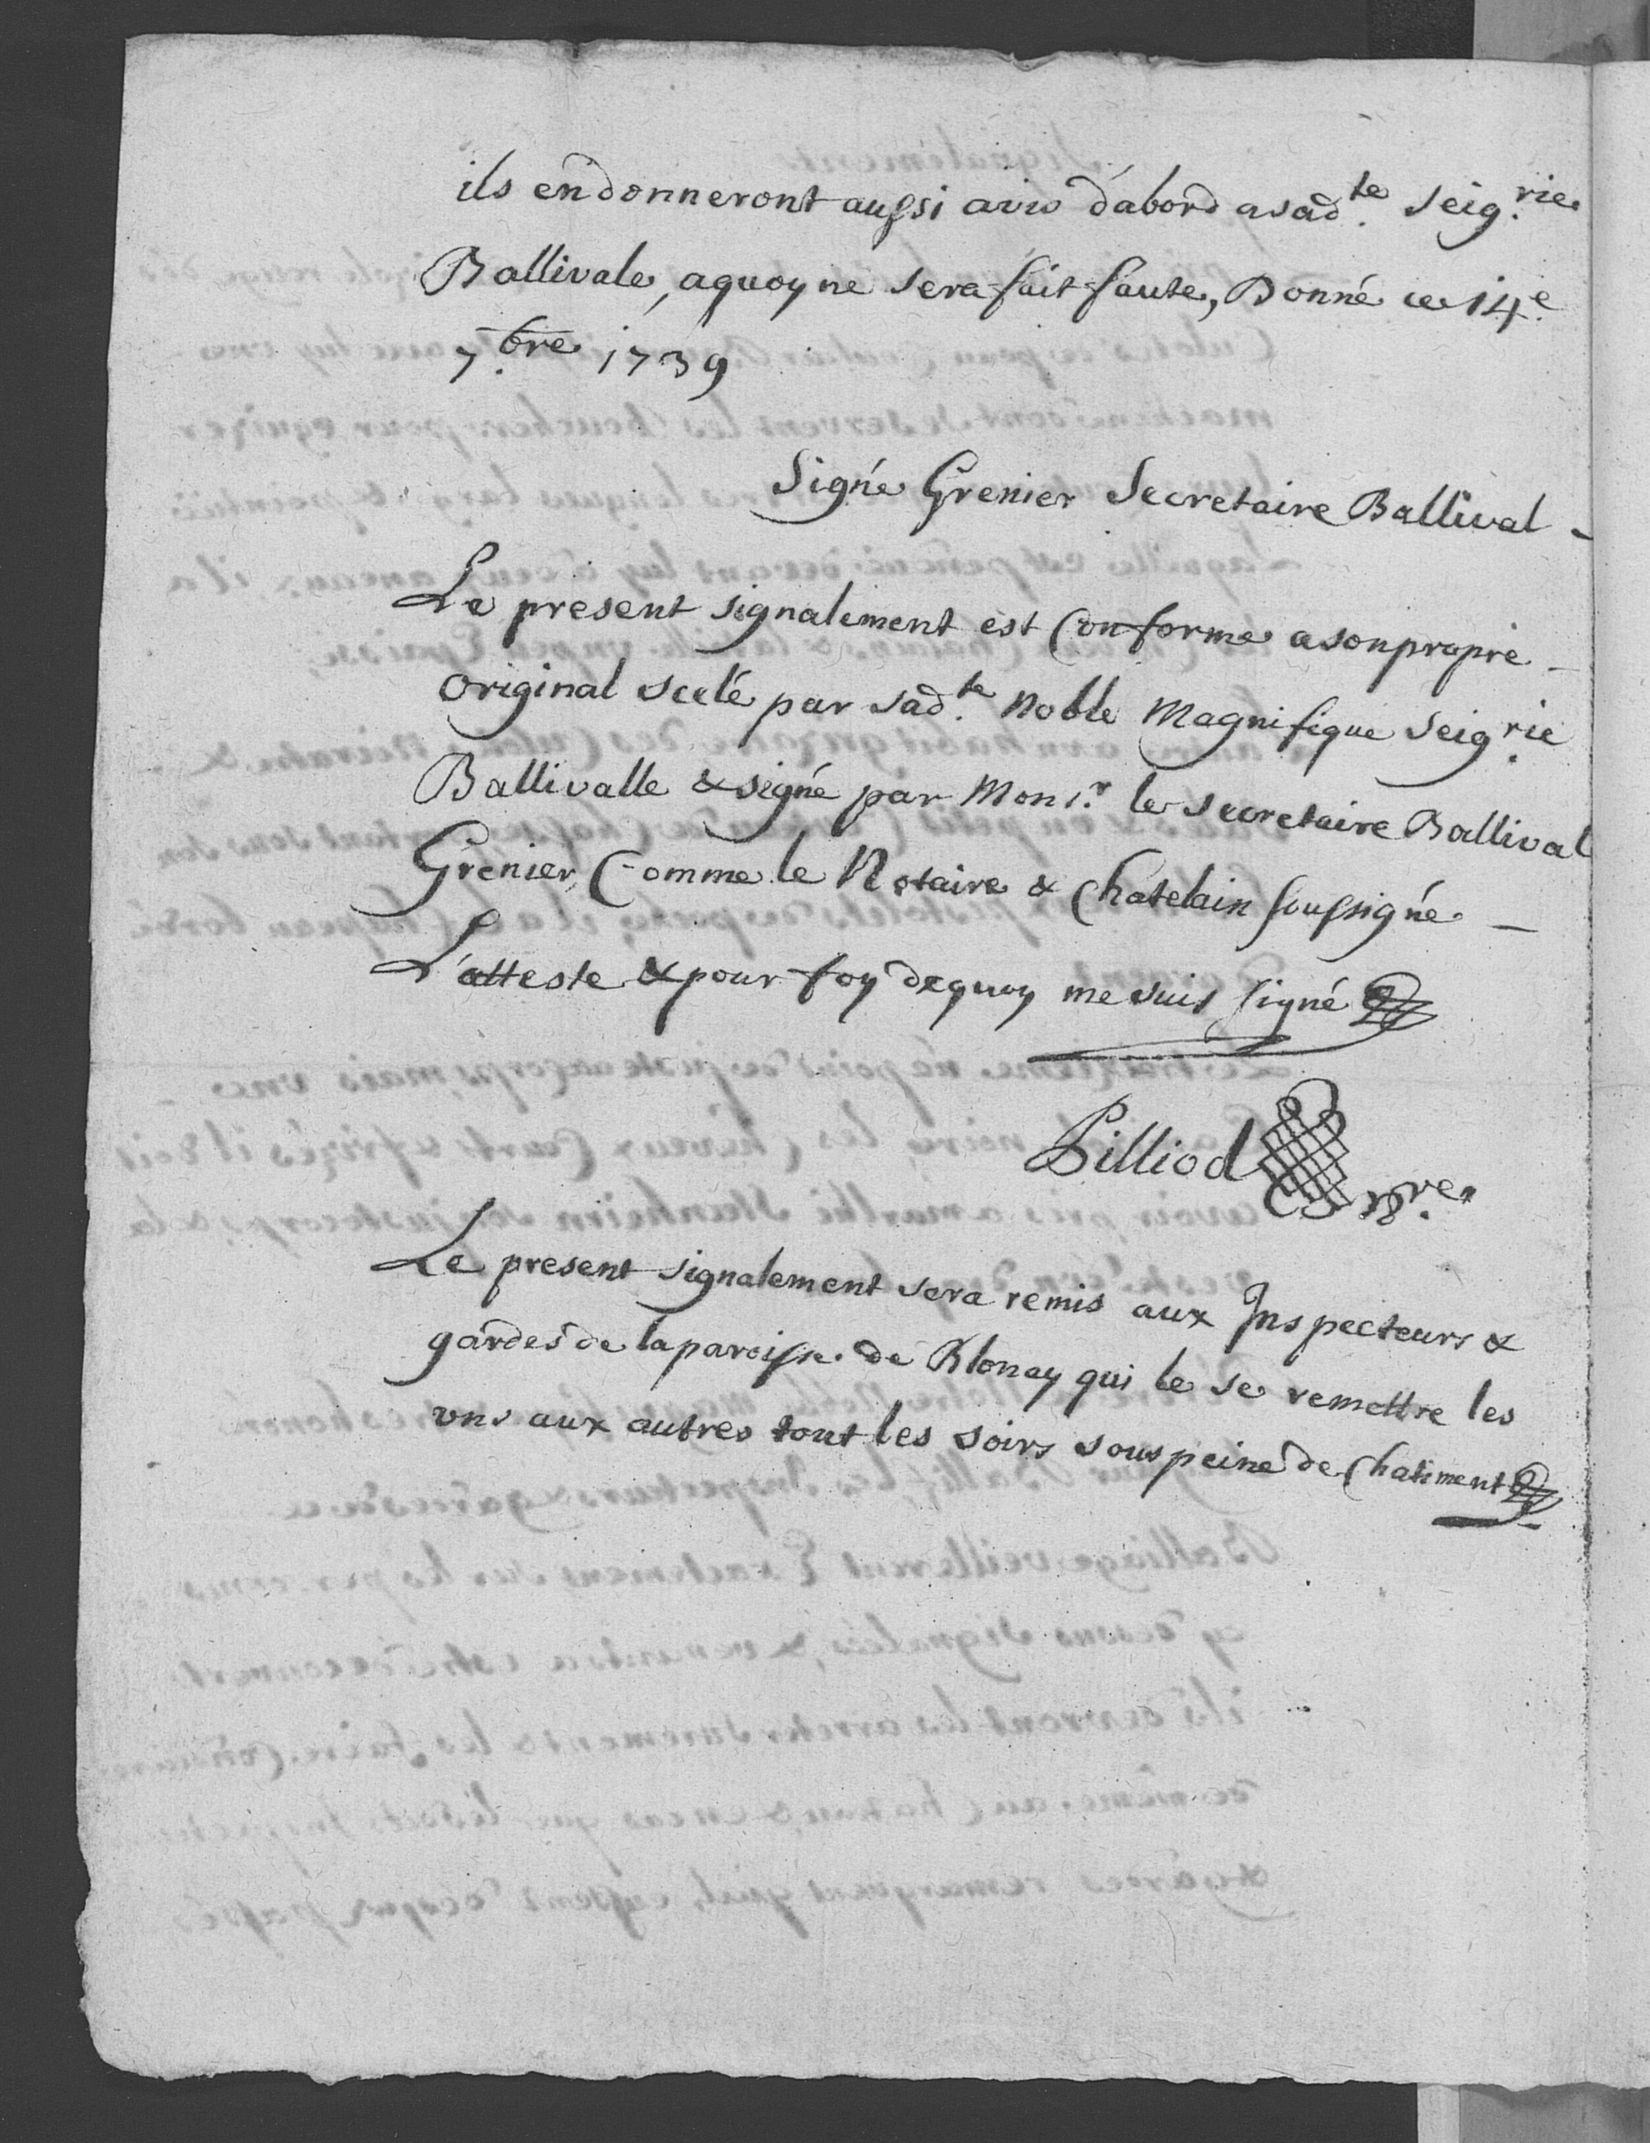 ils en donneront aussi avis d'abord a sad.te Seig.rie
Ballivale, a quoy ne sera fait faute, Donné ce 14.e
7.bre 1739
Signé Grenier Secretaire Ballival -
Le present signalement est Conforme a son propre -
Original scelé par sad.te Noble Magnifique Seig.rie
Ballivalle & signé par Mons.r le Secretaire Ballival
Grenier, Comme le Notaire & Chatelain soussigné -
L'atteste & pour foy dequoy me suis signé
Pilliod N.re
Le present signalement sera remis aux Inspecteurs &
gardes de la paroisse de Blonay qui le se remettre les
uns aux autres tout les soirs sous peine de Chatiment